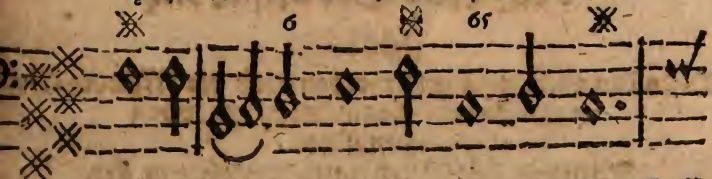 6 65